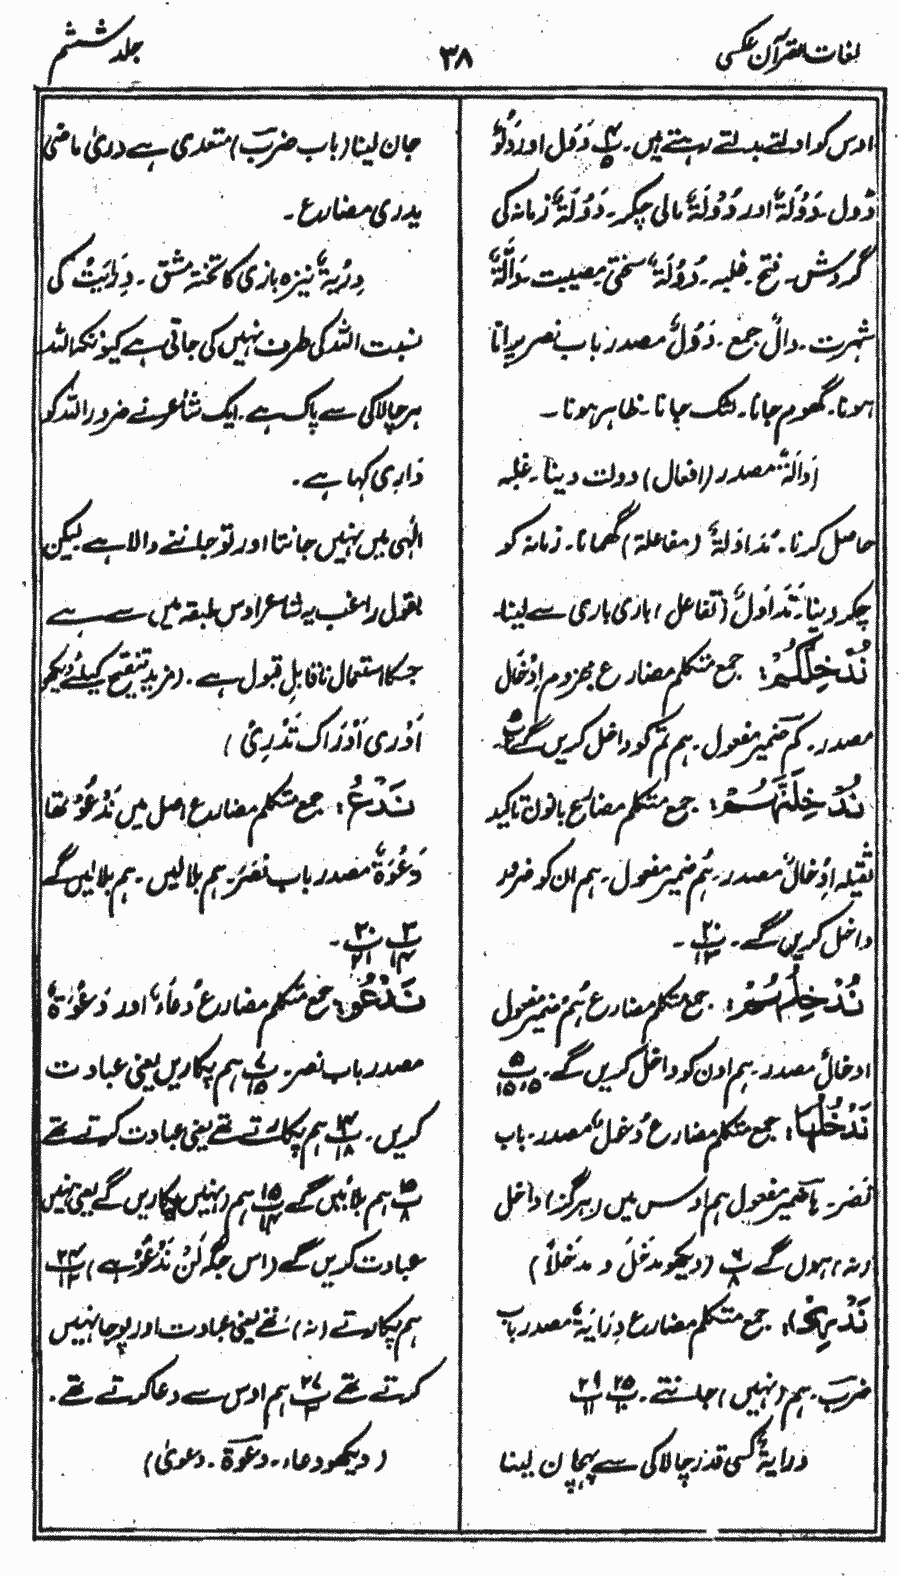 لغات القرآن عکسی
۳۸
جلد ششم
اوس کو ادلتے بدلتے رہتے ہیں۔ دَوَل اور دُوَلٌ
دُوَل۔ دَوْلَۃٌ اور دُوْلَۃٌ مالی چکر۔ دَوْلَۃٌ زمانہ کی
گردش۔ فتح۔ غلبہ۔ دُوْلَۃٌ سختی۔ مصیبت۔ دَالَّۃٌ
شہرت۔ دالٌ جمع۔ دَوْلٌ مصدر باب نصر پرانا
ہونا۔ گھوم جانا۔ لٹک جانا۔ ظاہر ہونا۔
اِدَالَۃٌ مصدر (افعال) دولت دینا۔ غلبہ
حاصل کرنا۔ مُدَاوَلَۃٌ (مفاعلۃ) گھمانا۔ زمانہ کو
چکر دینا۔ تَدَاوُلٌ (تفاعل) باری باری سے لینا۔
نُدْخِلْکُمْ: جمع متکلم مضارع مجزوم اِدْخَال
مصدر۔ کم ضمیر مفعول۔ ہم تم کو داخل کریں گے
نُدْخِلَنَّہُمْ: جمع متکلم مضارع بانون تاکید
ثقیلہ اِدْخَالٌ مصدر۔ ہُم ضمیر مفعول۔ ہم ان کو ضرور
داخل کریں گے۔ ۲۰/۱۳۔
نُدْخِلُہُمْ: جمع متکلم مضارع ہُم ضمیر مفعول
ادخالٌ مصدر۔ ہم اون کو داخل کریں گے۔ ۵/۱۵،۵
نَدْخُلَہَا: جمع متکلم مضارع دُخُلٌ مصدر۔ باب
نَصَرَ۔ ہا ضمیر مفعول ہم اوس میں (ہرگز) داخل
(نہ) ہوں گے ۶/۸ (دیکھو مدخل و مدخلاً)
نَدْرِیْ: جمع متکلم مضارع دِرَایَۃٌ مصدر باب
ضرب۔ ہم (نہیں) جانتے۔ ۲۵/۲۰ ۲۹/۱۱
درایۃٌ کسی قدر چالاکی سے پہچان لینا
جان لینا (باب ضرب) متعدی ہے دریٰ ماضی
یدری مضارع۔
دِرْیَۃٌ نیزہ بازی کا تختۂ مشق۔ دِرَایَتْ کی
نسبت اللہ کی طرف نہیں کی جاتی ہے کیونکہ اللہ
ہر چالاکی سے پاک ہے۔ ایک شاعر نے ضرور اللہ کو
دَارِی کہا ہے۔
الٰہی میں نہیں جانتا اور تو جاننے والا ہے لیکن
بقول راغب یہ شاعر اوس طبقہ میں سے ہے
جسکا استعمال ناقابلِ قبول ہے۔ (مزید تنقیح کیلئے دیکھو
اَدْرِی اَدْرَاک تَدْرِیْ)
نَدْعُ: جمع متکلم مضارع اصل میں نَدْعُوْ تھا
دَعْوَۃٌ مصدر باب نَصَرَ۔ ہم بلالیں۔ ہم بلالیں گے
۳/۱۴ ۳۰/۲۱۔
نَدْعُو: جمع متکلم مضارع دُعَاءٌ اور دَعْوَۃٌ
مصدر باب نصر۔ ۷/۱۵ ہم پکاریں یعنی عبادت
کریں۔ ۱۴/۱۸ ہم پکارتے تھے یعنی عبادت کرتے تھے
۱۵/۸ ہم بلائیں گے ۱۵/۱۴ ہم (نہیں) پکاریں گے یعنی نہیں
عبادت کریں گے (اس جگہ لَنْ نَدْعُوَا ہے) ۲۴/۱۲
ہم پکارتے (نہ) تھے یعنی عبادت اور پوجا نہیں
کرتے تھے ۲۷/۳ ہم اوس سے دعا کرتے تھے۔
(دیکھو دعاء۔ دعوۃ۔ دعویٰ)